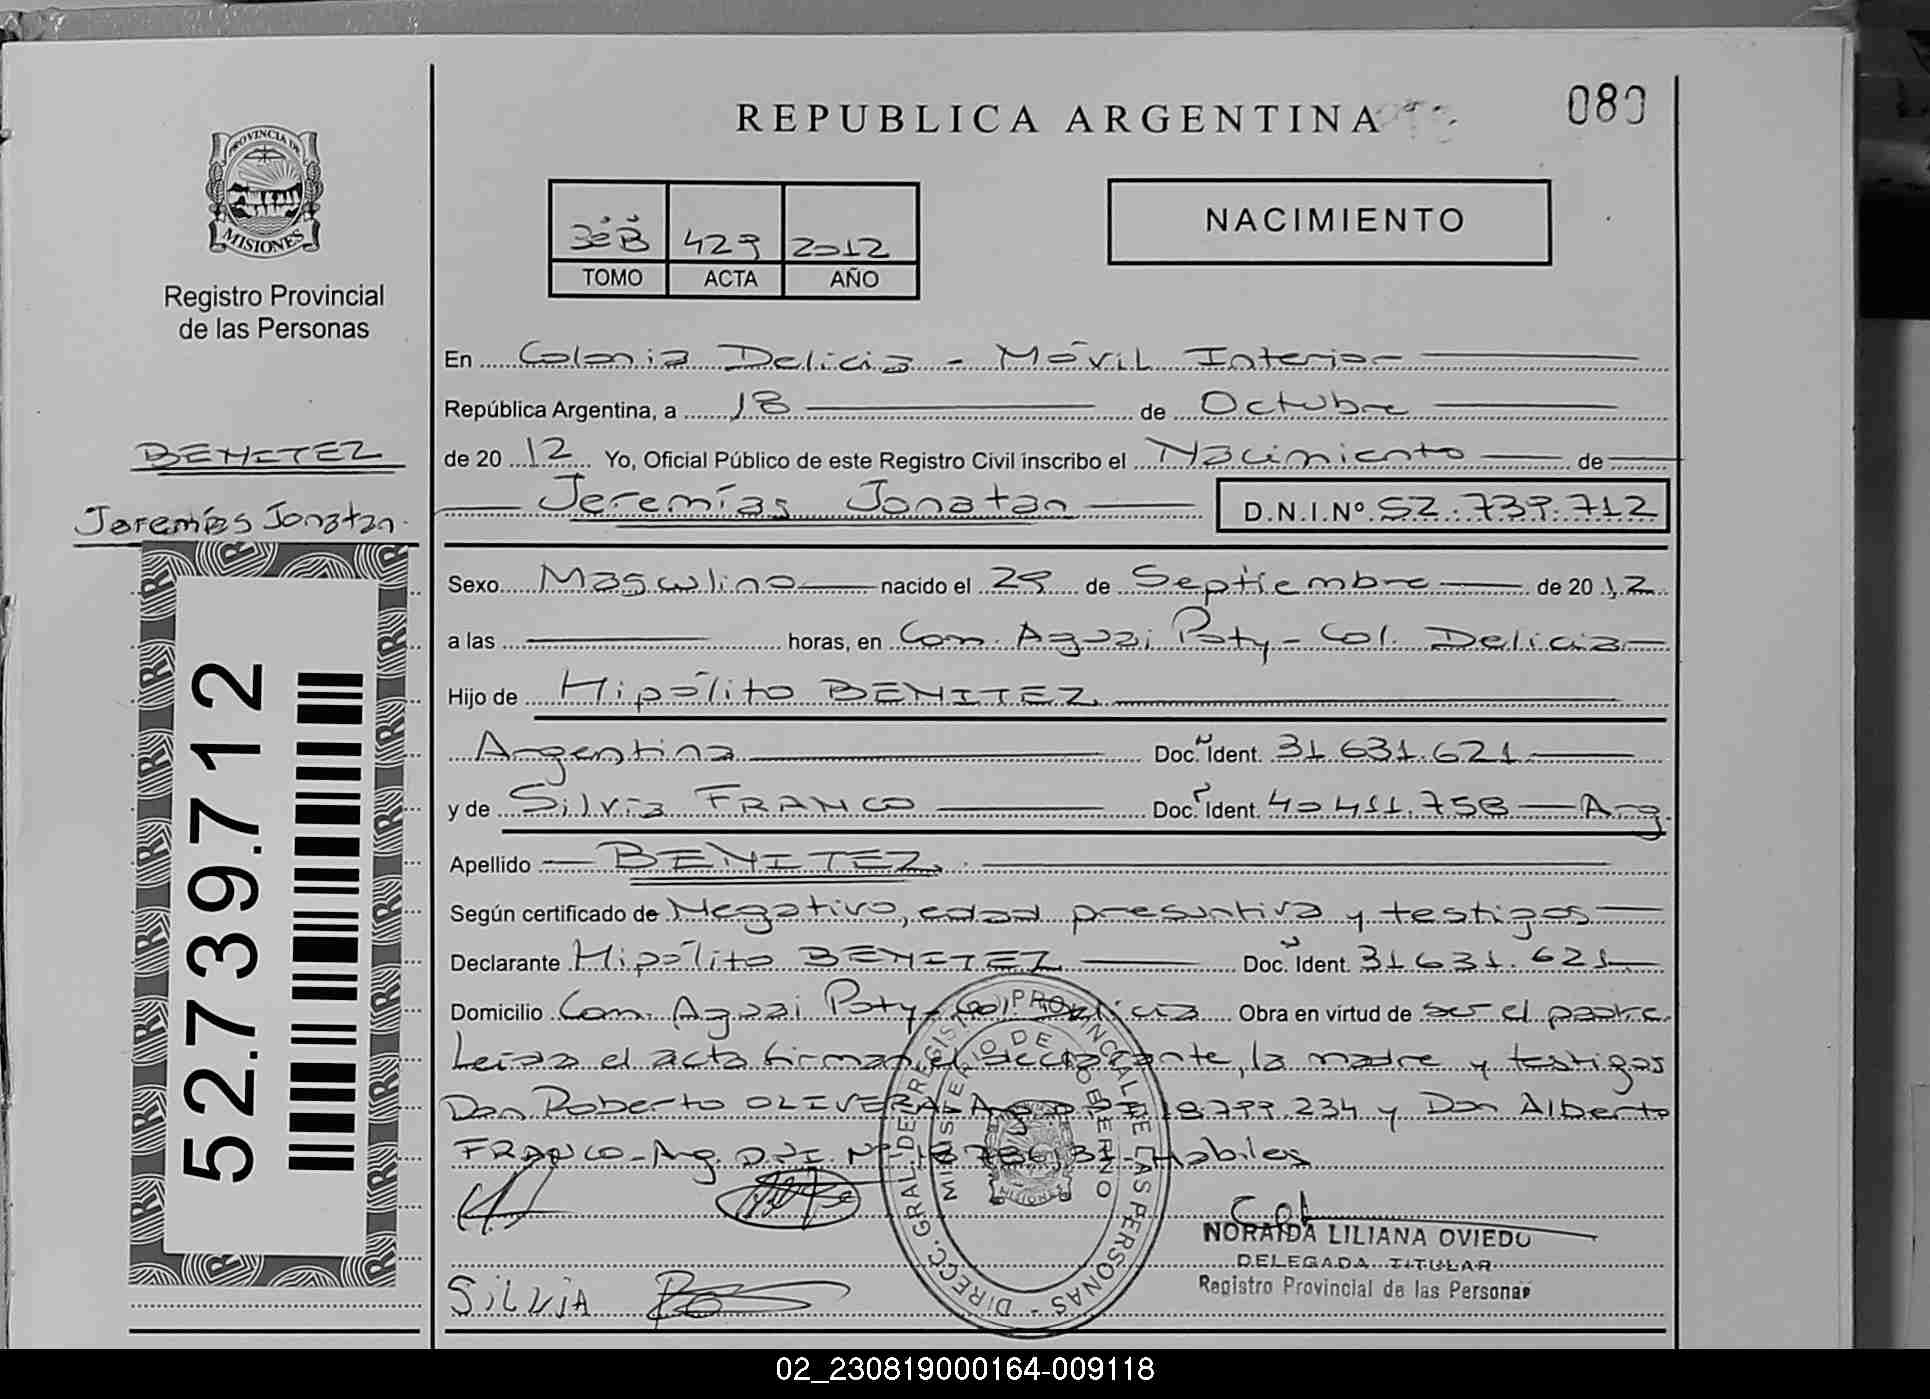 REPUBLICA ARGENTINA
080
PROVINCIA DE
MISIONES
Registro Provincial
de las Personas
3èB 429 2012
TOMO ACTA AÑO
NACIMIENTO
En Colonia Delicia - Móvil Interior
República Argentina, a 18 de Octubre
de 20 12 Yo, Oficial Público de este Registro Civil inscribo el Nacimiento de
Jeremías Jonatan D.N.I.Nº 52.739.712
BENITEZ
Jeremías Jonatan
52.739.712
Sexo Masculino nacido el 29 de Septiembre de 20 12
a las horas, en Com. Aguai Poty - Col. Delicia
Hijo de Hipólito BENITEZ
Argentina Doc. Ident. 31.631.621
y de Silvia FRANCO Doc. Ident. 40.411.758 Arg.
Apellido BENITEZ
Según certificado de Negativo, edad presuntiva y testigos
Declarante Hipólito BENITEZ Doc. Ident. 31.631.621
Domicilio Com. Aguai Poty - Col. Delicia Obra en virtud de ser el padre
Leida el acta firman el declarante, la madre y testigos
Don Roberto OLIVERA - Arg. D.N.I. 18.799.234 y Don Alberto
FRANCO - Arg. D.N.I. Nº Habiles
DIRECC. GRAL. DE REGISTRO PROVINCIAL DE LAS PERSONAS
MINISTERIO DE GOBIERNO
MISIONES
NORAIDA LILIANA OVIEDO
DELEGADA TITULAR
Registro Provincial de las Personas
SiLViA
02_230819000164-009118